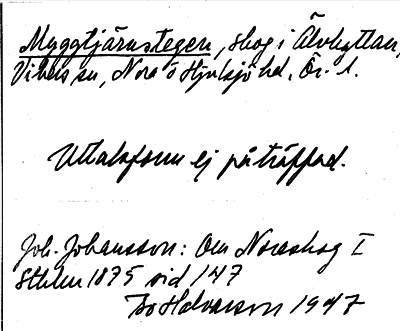 Myggtjärnstegen, skog i Älvhyttan,
Vikers sn, Nora o Hjulsjö hd, Ör. l.
Uttalsform ej påträffad.
Joh. Johansson: Om Noraskog I
Sthlm 1875 sid 147
Bo Halvarson 1947